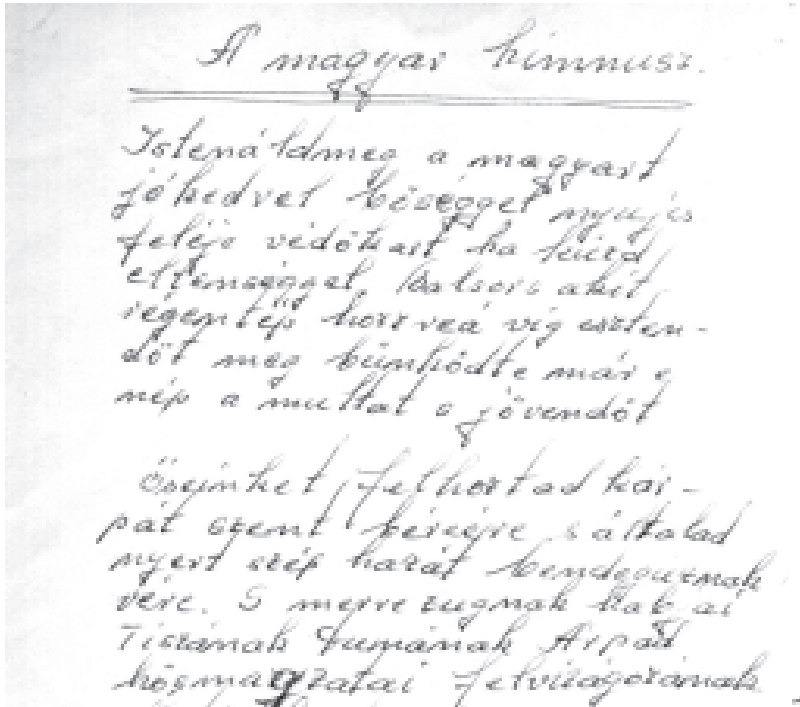 A magyar himnusz.
Istenáldmeg a magyart
jókedvel bőséggel nyujts
feléje védőkart ha küzd
ellenséggel, Balsors akit
régentép hozzreá víg eszten-
dőt meg bűnhődte már e
nép a multat s jövendőt
Őseinket felhoztad kár-
pát szent bércére s általad
nyert szép hazát bendegúznak
vére. S merre zugnak hab ai
Tiszának Dumának Árpád
hősmagzatai felvirágozának